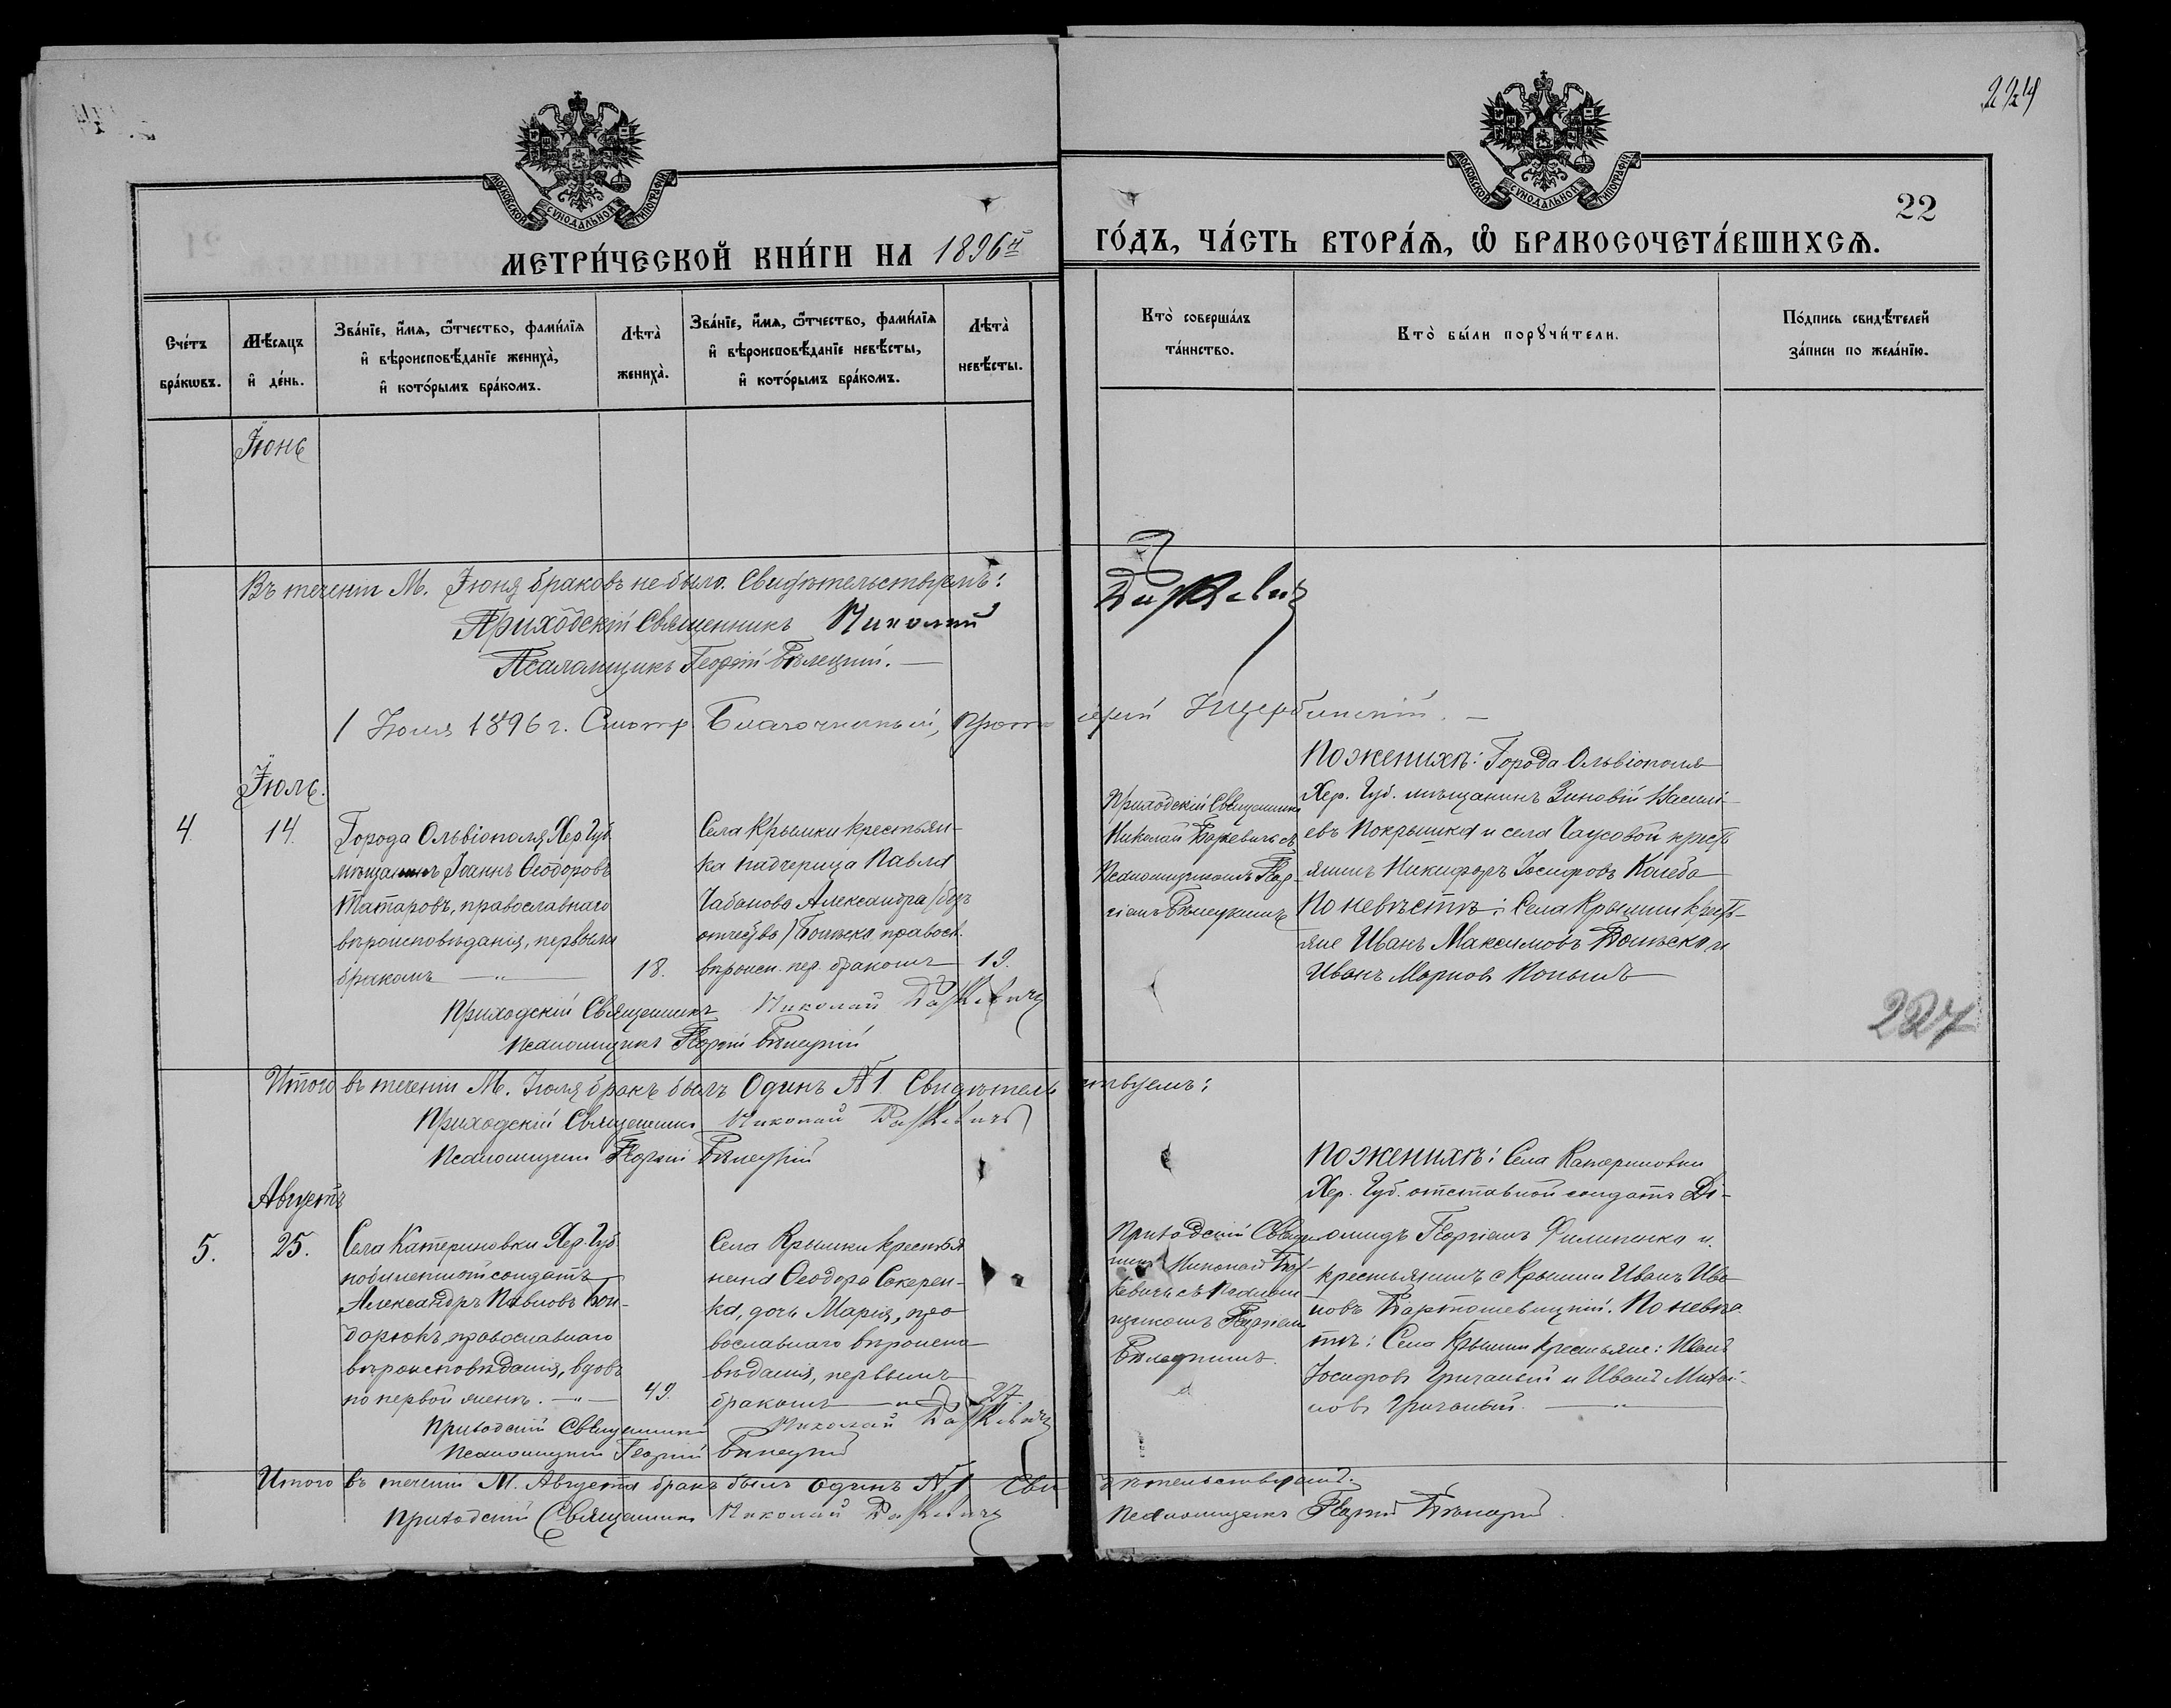 224
22
МОСКОВСКОЙ СУНОДАЛЬНОЙ ТИПОГРАФІИ
МОСКОВСКОЙ СУНОДАЛЬНОЙ ТИПОГРАФІИ
МЕТРИ́ЧЕСКОЙ КНИ́ГИ НА 1896й
ГО́ДЪ, ЧА́СТЬ ВТОРА́Ѧ, Ѽ БРАКОСОЧЕТА́ВШИХСѦ.
Сче́тъ бра́кѡвъ.
Мѣ́сяцъ и҆ де́нь.
Зва́нїе, и҆́мѧ, ѻ҆́тчество, фамѝлїѧ и҆ вѣроисповѣ́данїе жениха̀, и҆ кото́рымъ бра́комъ.
Лѣта̀ жениха̀.
Зва́нїе, и҆́мѧ, ѻ҆́тчество, фамѝлїѧ и҆ вѣроисповѣ́данїе невѣ́сты, и҆ кото́рымъ бра́комъ.
Лѣта̀ невѣ́сты.
Кто̀ соверша́лъ та́инство.
Кто̀ бы́ли порꙋчи́тели.
По́дпись свидѣ́телей за́писи по жела́нїю.
Іюнь
Въ теченіи М. Іюня браковъ не было. Свидѣтельствуемъ:
Приходскій Священникъ Николай
Псаломщикъ Георгій Бѣлецкій. —
1 Іюля 1896 г. Смотр. Благочинный, Протоіерей Щербинскій. —
Іюль.
4. 14.
Города Ольвіополя Хер. Губ.
мѣщанинъ Іоаннъ Ѳеодоровъ
Татаровъ, православнаго
вѣроисповѣданія, первымъ
бракомъ — 18.
Села Крымки крестьян-
ка падчерица Павла
Чабанова Александра (безъ
отчества) православ.
вѣроисп. пер. бракомъ 19.
Приходскій Священникъ
Николай съ
Псаломщикомъ Геор-
гіемъ Бѣлецкимъ
По женихѣ: Города Ольвіополя
Хер. Губ. мѣщанинъ Зиновій Василі-
евъ Покрышка и села Чаусовой крест
янинъ Никифоръ Іосифовъ Колеба
По невѣстѣ: Села Крымки крест-
яне Иванъ Максимовъ и
Иванъ Марковъ
Приходскій Священникъ Николай
Псаломщикъ Георгій Бѣлецкій
227
Итого въ теченіи М. Іюля бракъ былъ Одинъ № 1 Свидѣтельствуемъ:
Приходскій Священникъ Николай
Псаломщикъ Георгій Бѣлецкій
Августъ
5. 25.
Села Катериновки Хер. Губ.
солдатъ
Александръ Павловъ Бон-
дарюкъ, православнаго
вѣроисповѣданія, вдовъ
по первой женѣ. — 49.
Села Крымки крестья
нина Ѳеодора Сокерен-
ка, дочь Марія, пра
вославнаго вѣроиспо-
вѣданія, первымъ
бракомъ — 27.
Приходскій Священ
никъ Николай
съ Псалом
щикомъ Георгіемъ
Бѣлецкимъ.
По женихѣ: Села Катериновки
Хер. Губ. отставной солдатъ Ді-
омидъ Филипенко и
крестьянинъ с Крымки Иванъ Ива-
новъ Бартошевицкій. По невѣс
тѣ: Села Крымки крестьяне: Иванъ
Іосифовъ и Иванъ
Приходскій Священникъ Николай
Псаломщикъ Георгій Бѣлецкій
Итого въ теченіи М. Августа бракъ былъ Одинъ № 1 Свидѣтельствуемъ.
Приходскій Священникъ Николай
Псаломщикъ Георгій Бѣлецкій.